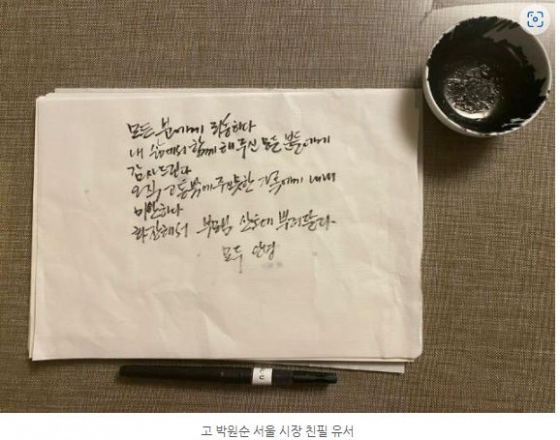 모든 분에게 죄송하다
내 삶에서 함께 해주신 모든 분들에게
감사드린다
오직 고통밖에 주지못한 가족에게 내내
미안하다
화장해서 부모님 산소에 뿌려달라
모두 안녕
고 박원순 서울 시장 친필 유서